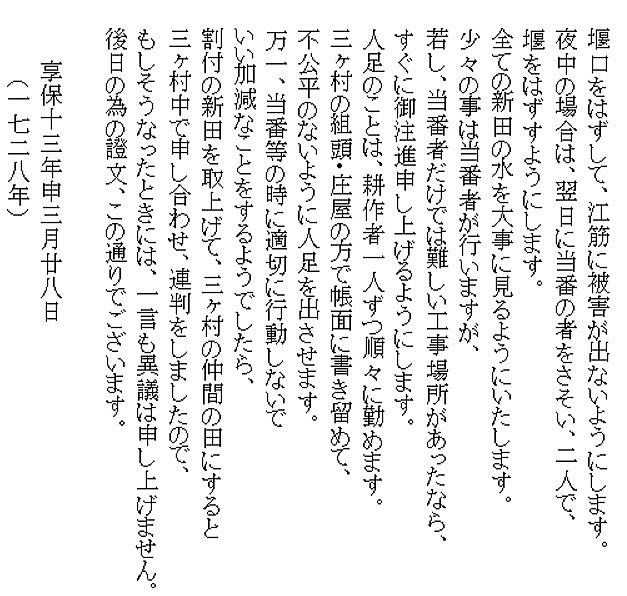 堰口をはずして、江筋に被害が出ないようにします。
夜中の場合は、翌日に当番の者をさそい、二人で、
堰をはずすようにします。
全ての新田の水を大事に見るようにいたします。
少々の事は当番者が行いますが、
若し、当番者だけでは難しい工事場所があったなら、
すぐに御注進申し上げるようにします。
人足のことは、耕作者一人ずつ順々に勤めます。
三ヶ村の組頭・庄屋の方で帳面に書き留めて、
不公平のないように人足を出させます。
万一、当番等の時に適切に行動しないで
いい加減なことをするようでしたら、
割付の新田を取上げて、三ヶ村の仲間の田にすると
三ヶ村中で申し合わせ、連判をしましたので、
もしそうなったときには、一言も異議は申し上げません。
後日の為の證文、この通りでございます。
享保十三年申三月廿八日
（一七二八年）